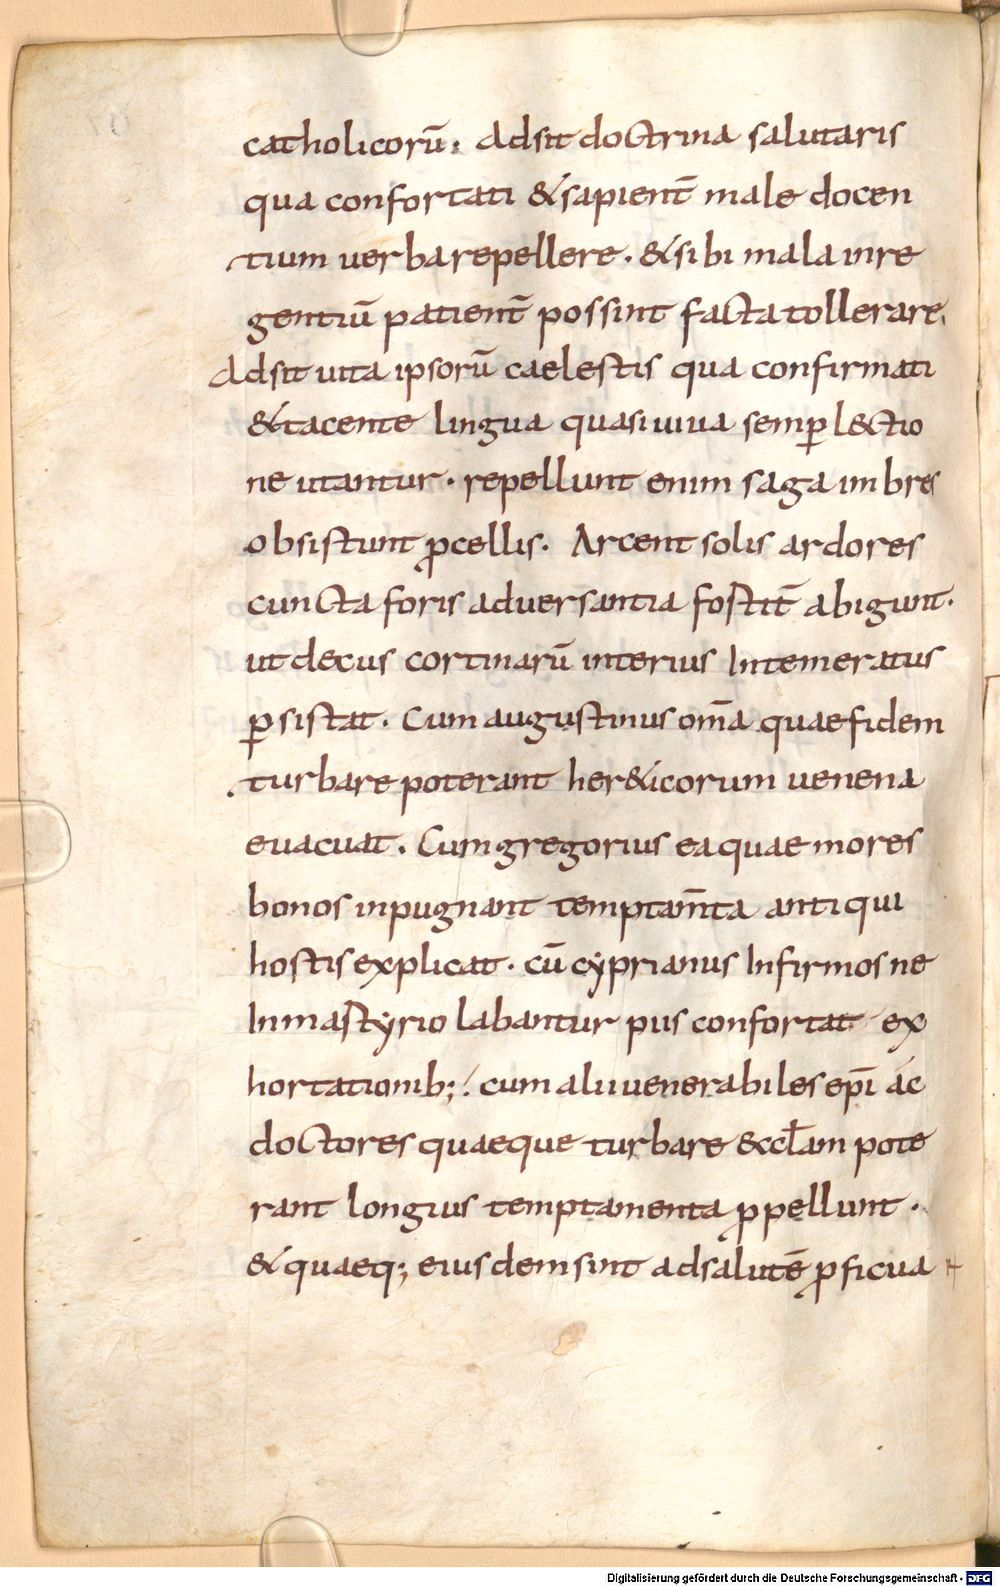 catholicorū. Adsit doctrina salutaris
qua confortati & sapient̄ male docen
tium verba repellere. & sibi mala inre
gentiū patient̄ possint facta tollerare.
Adsit uita ipsorū caelestis qua confirmati
& tacente lingua quasi uiua semꝑ l&ctio
ne utantur. repellunt enim saga imbres
obsistunt ꝓcellis. Arcent solis ardores
cuncta foris aduersantia fostit̄ abigunt.
ut decus cortinarū interius Intemeratus
ꝑsistat. Cum augustinus om̄a quae fidem
turbare poterant her&icorum uenena
euacuat. Cum gregorius ea quae mores
bonos inpugnant temptam̄ta antiqui
hostis explicat. cū cẏprianus Infirmos ne
In mastẏrio labantur pus confortat ex
hortationib; . cum alii uenerabiles ep̄i ac
doctores quaeque turbare &ccl̄am pote
rant longius temptamenta ꝓpellunt.
& quaeq; eiusdem sunt ad salutē ꝓficua
Digitalisierung gefördert durch die Deutsche Forschungsgemeinschaft - DFG